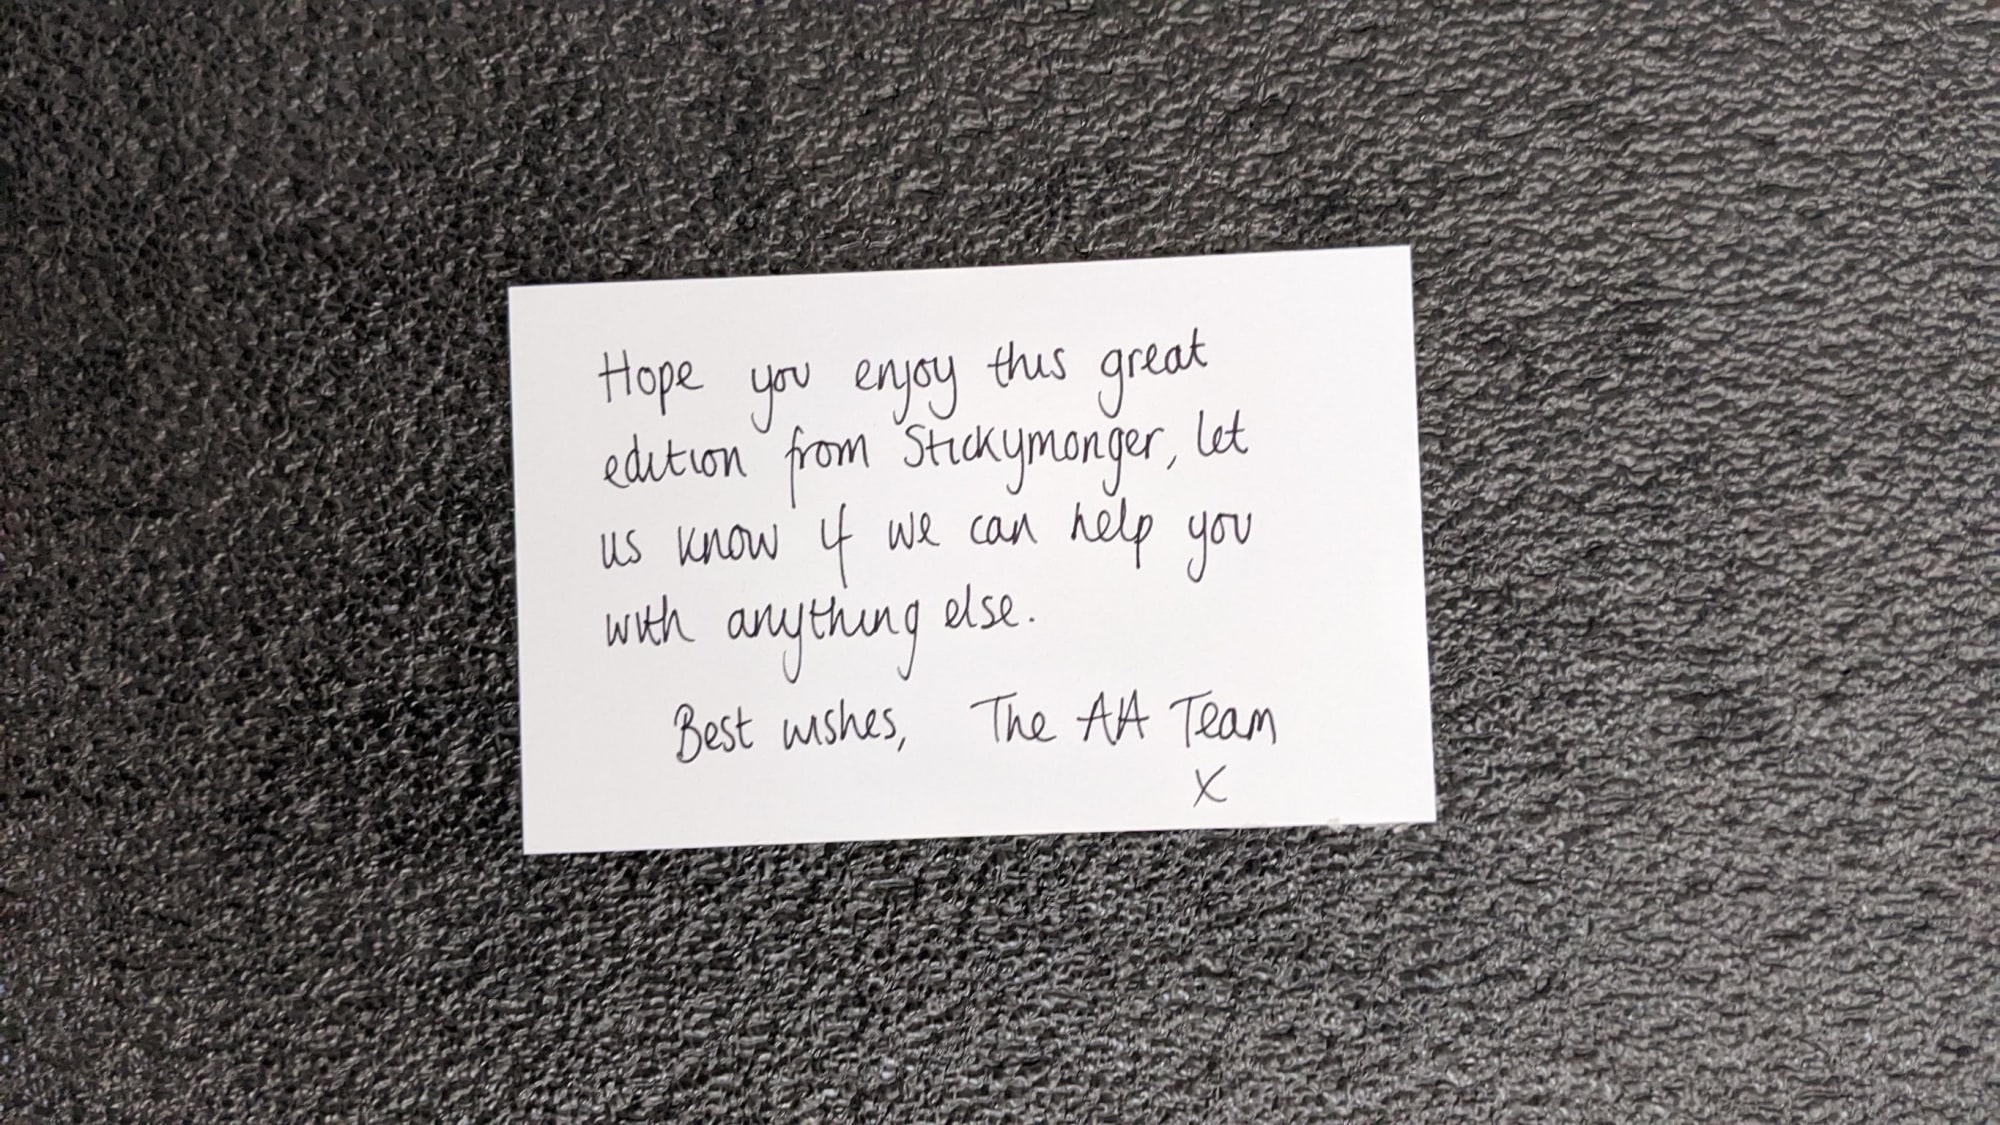 Hope you enjoy this great
edition from Stickymonger, let
us know if we can help you
with anything else.
Best wishes, The AA Team
X